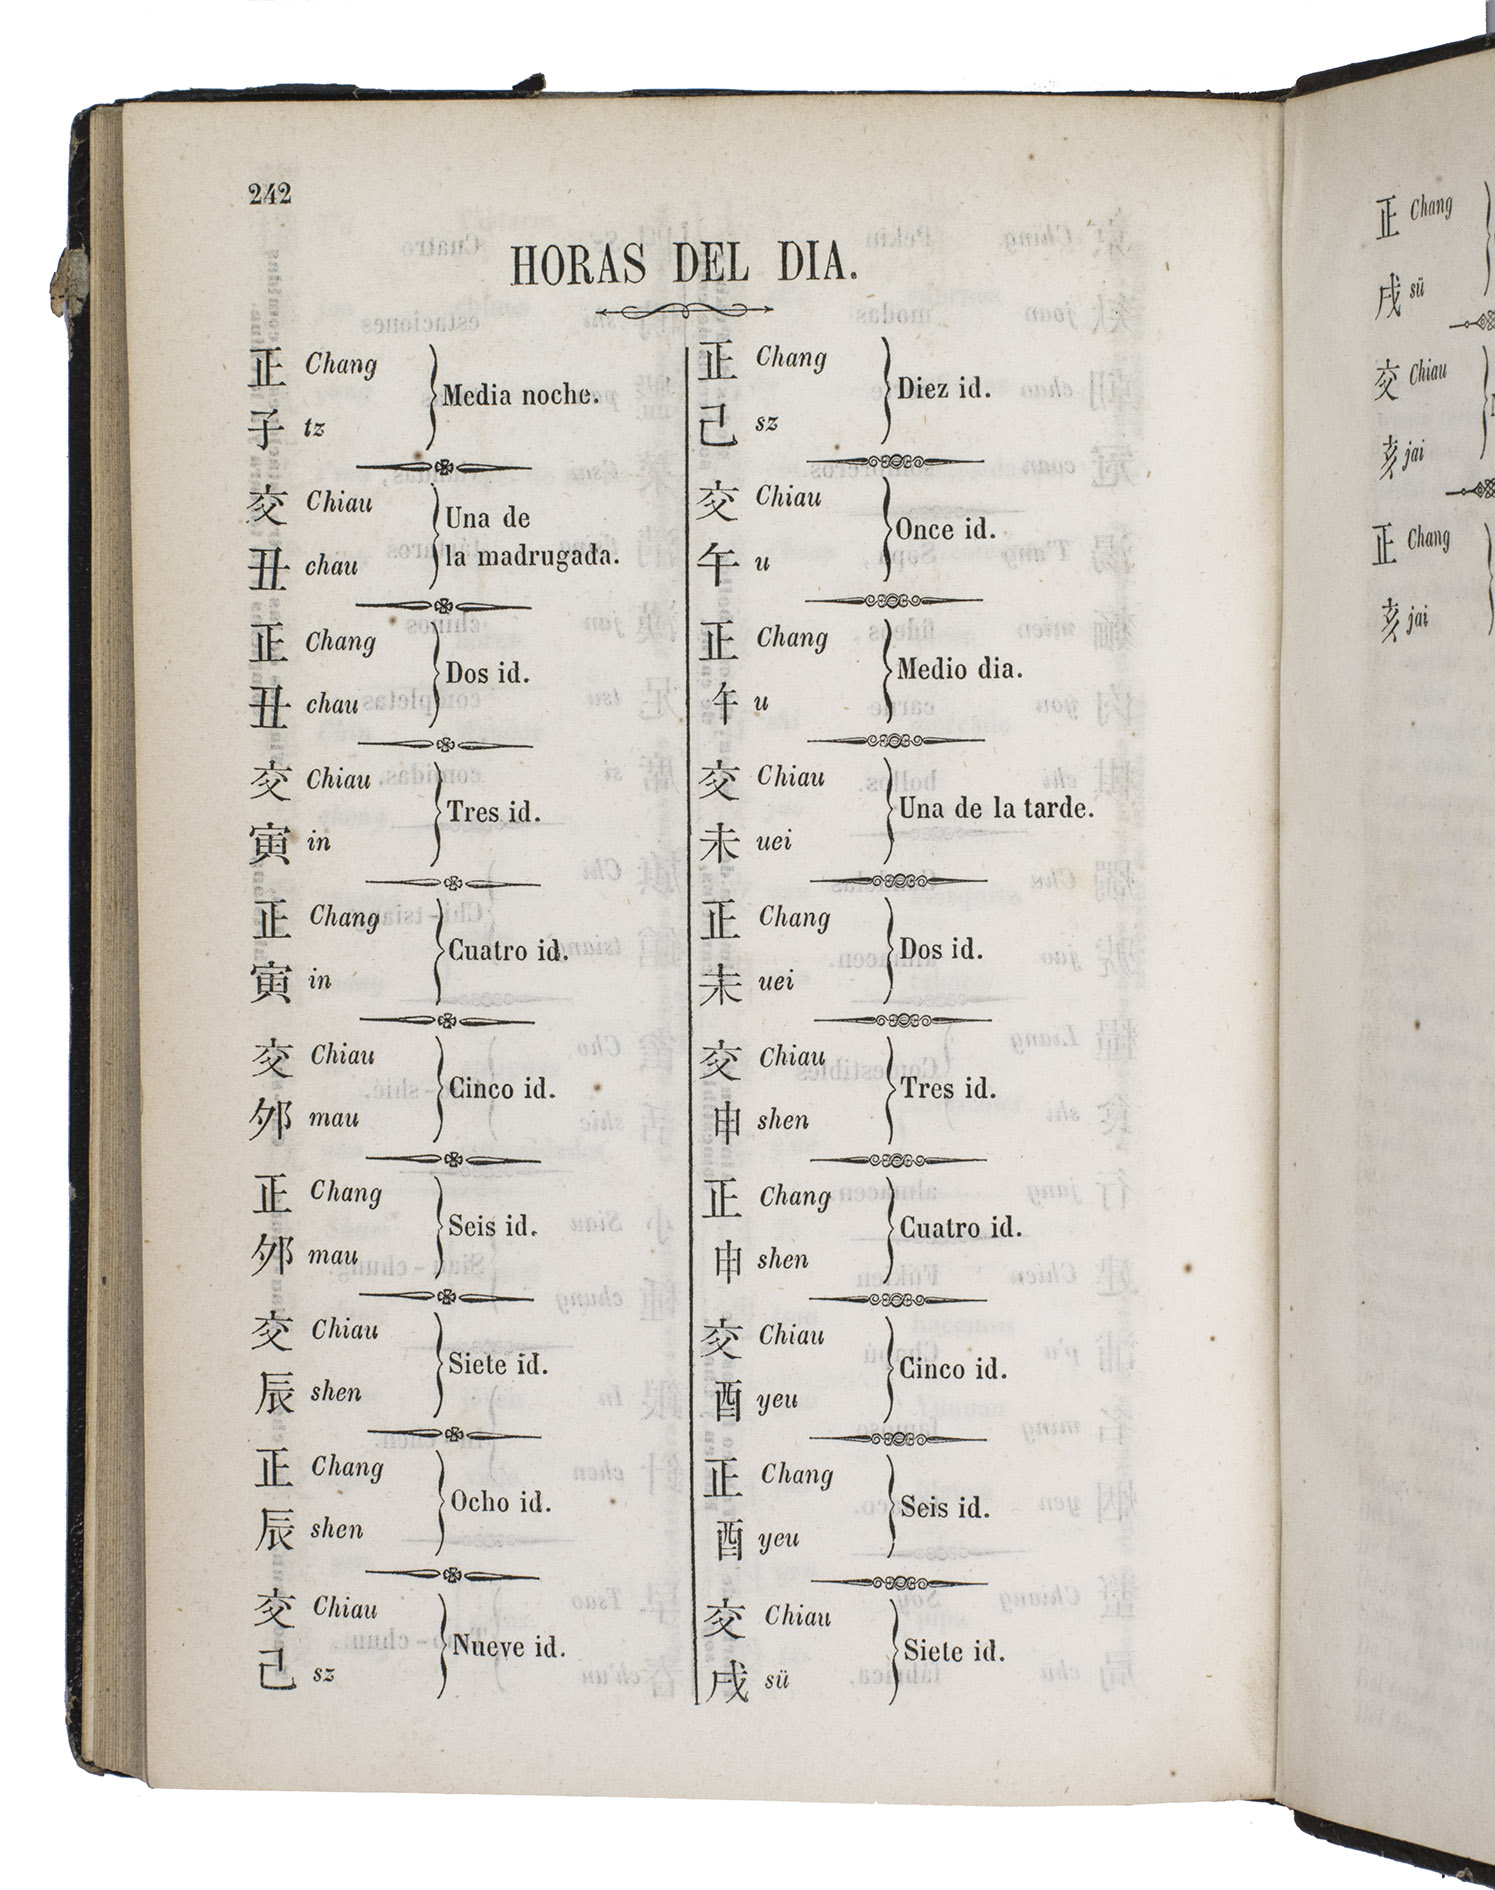 242
HORAS DEL DIA.
正 Chang
子 tz
Media noche.
交 Chiau
丑 chau
Una de
la madrugada.
正 Chang
丑 chau
Dos id.
交 Chiau
寅 in
Tres id.
正 Chang
寅 in
Cuatro id.
交 Chiau
夘 mau
Cinco id.
正 Chang
夘 mau
Seis id.
交 Chiau
辰 shen
Siete id.
正 Chang
辰 shen
Ocho id.
交 Chiau
己 sz
Nueve id.
正 Chang
己 sz
Diez id.
交 Chiau
午 u
Once id.
正 Chang
午 u
Medio dia.
交 Chiau
未 uei
Una de la tarde.
正 Chang
未 uei
Dos id.
交 Chiau
申 shen
Tres id.
正 Chang
申 shen
Cuatro id.
交 Chiau
酉 yeu
Cinco id.
正 Chang
酉 yeu
Seis id.
交 Chiau
戌 sü
Siete id.
正 Chang
戌 sü
交 Chiau
亥 jai
正 Chang
亥 jai